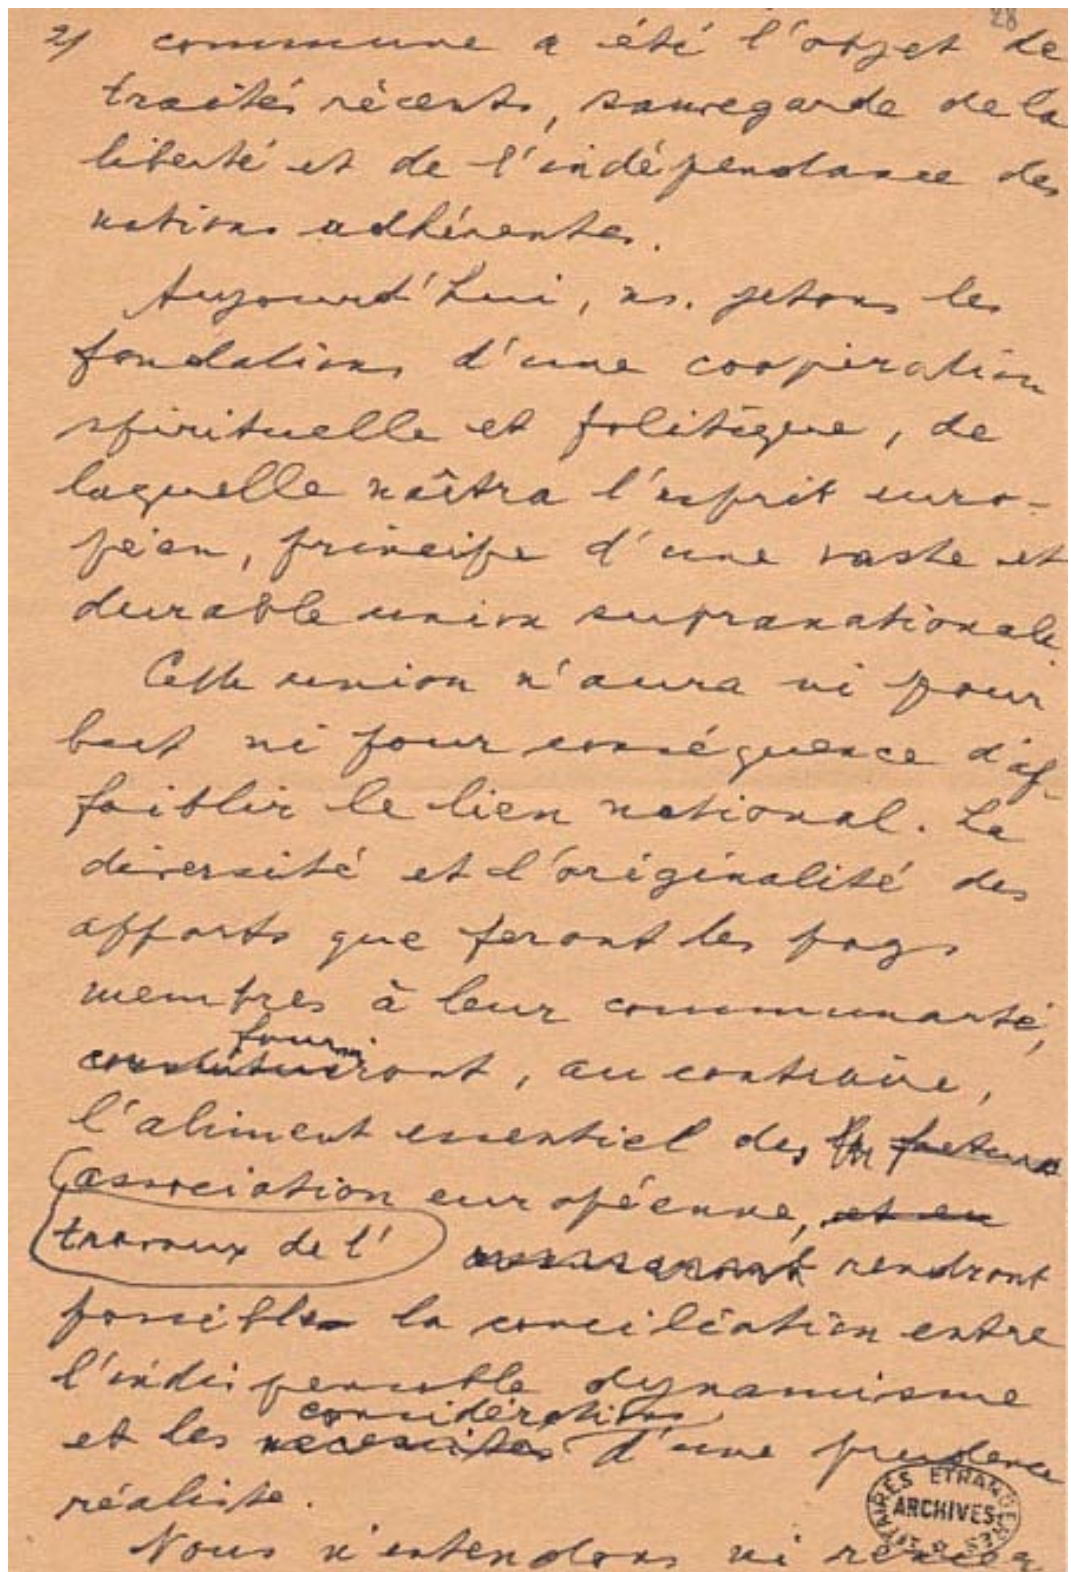 28
2/ commune a été l'objet de
traités récents, sauvegarde de la
liberté et de l'indépendance des
nations adhérentes.
Aujourd'hui, ns. jetons les
fondations d'une coopération
spirituelle et politique, de
laquelle naîtra l'esprit euro-
péen, principe d'une vaste et
durable union supranationale.
Cette union n'aura ni pour
but ni pour conséquence d'af-
faiblir le lien national. La
diversité et l'originalité des
apports que feront les pays
membres à leur communauté,
fourni
constitueront, au contraire,
l'aliment essentiel des futurs
association européenne, et en
travaux de l' rendront
possible la conciliation entre
l'indispensable dynamisme
considérations
et les nécessités d'une prudence
réaliste.
Nous n'entendons ni renier
AFFAIRES ETRANGERES
ARCHIVES